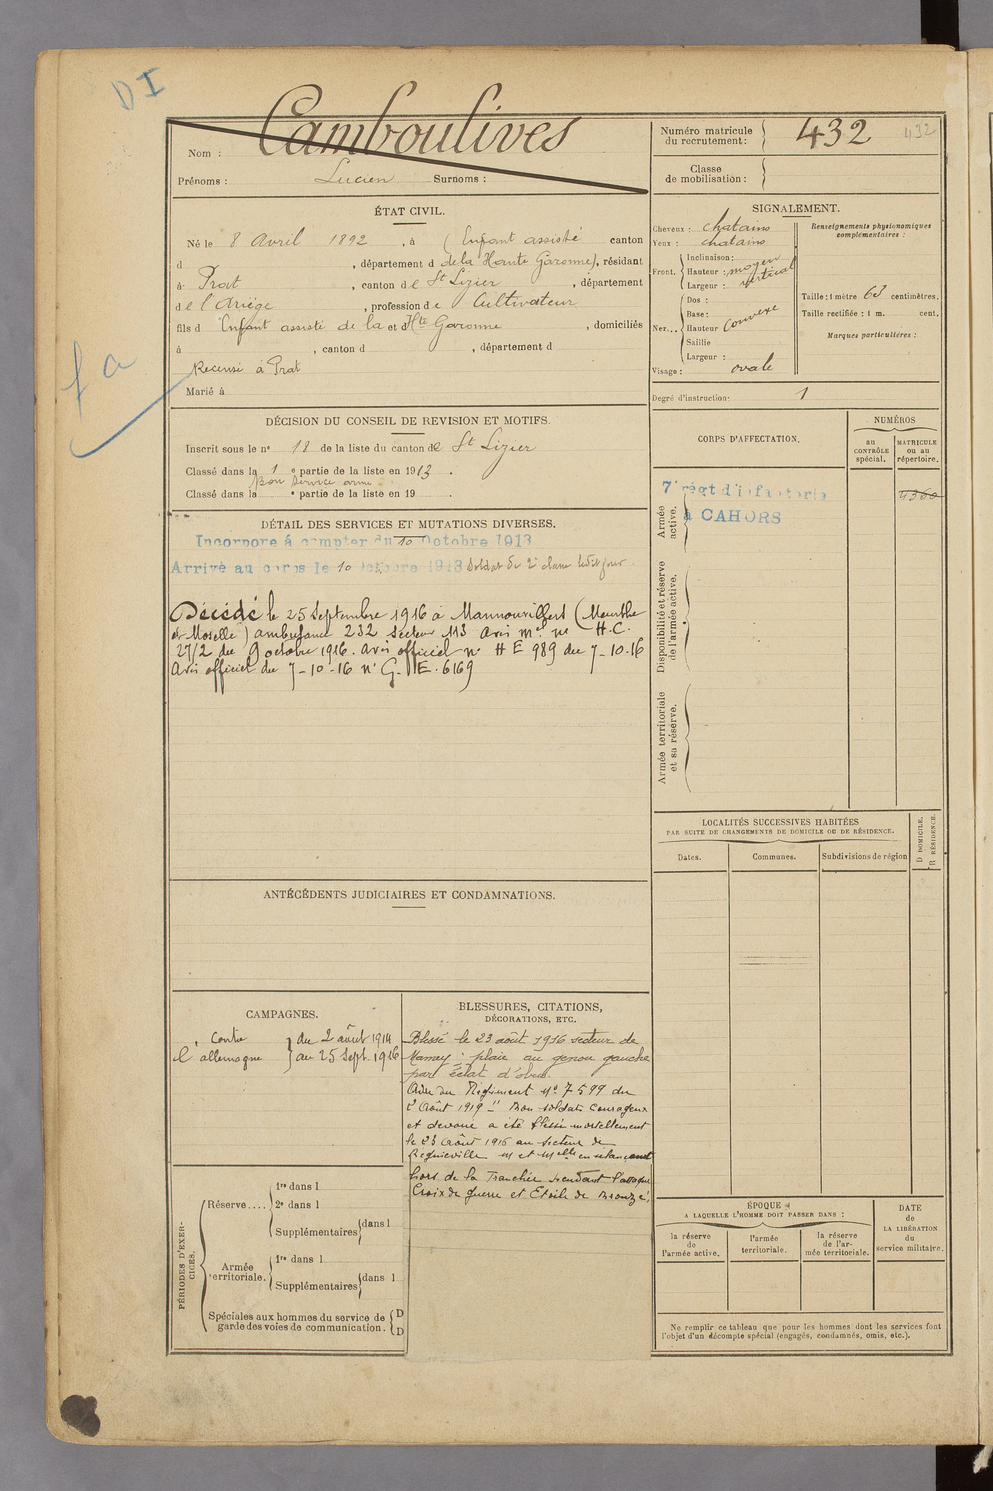 DI
Camboulives
Nom :
Prénoms : Lucien Surnoms :
Numéro matricule du recrutement : 432 432
Classe de mobilisation :
ÉTAT CIVIL.
Né le 8 Avril 1892, à (Enfant assisté canton
d , département d de la Haute Garonne), résidant
à Prat , canton de St Lizier , département
de l'Ariège , profession de Cultivateur
fils d'Enfant assisté de la et d Hte Garonne , domiciliés
à , canton d , département d
Recensé à Prat
Marié à
fa
SIGNALEMENT.
Cheveux : chatains
Yeux : chatains
Front. Inclinaison :
Hauteur : moyen
Largeur : vertical
Nez... Dos :
Base :
Hauteur convexe
Saillie
Largeur :
Visage : ovale
Renseignements physionomiques complémentaires :
Taille : 1 mètre 63 centimètres.
Taille rectifiée : 1 m. cent.
Marques particulières :
Degré d'instruction : 1
DÉCISION DU CONSEIL DE REVISION ET MOTIFS.
Inscrit sous le n° 18 de la liste du canton de St Lizier
Classé dans la 1 e partie de la liste en 1913 .
Bon service armé
Classé dans la e partie de la liste en 19 .
CORPS D'AFFECTATION.
NUMÉROS
au CONTRÔLE spécial.
MATRICULE ou au répertoire.
Armée active.
7e régt d'infanterie
à CAHORS
4360
Disponibilité et réserve de l'armée active.
Armée territoriale et sa réserve.
DÉTAIL DES SERVICES ET MUTATIONS DIVERSES.
Incorporé à compter du 10 Octobre 1913
Arrivé au corps le 10 Octobre 1913 Soldat de 2e classe ledit jour
Décédé le 25 Septembre 1916 à Mannonvillers (Meurthe
et Moselle) ambulance 232 Secteur 113 avis mel no H.C.
27/2 du 9 octobre 1916. avis officiel no H E 989 du 7-10-16
Avis officiel du 7-10-16 no G. E. 6169
ANTÉCÉDENTS JUDICIAIRES ET CONDAMNATIONS.
LOCALITÉS SUCCESSIVES HABITÉES
PAR SUITE DE CHANGEMENTS DE DOMICILE OU DE RÉSIDENCE.
Dates.
Communes.
Subdivisions de région
D DOMICILE.
R RÉSIDENCE.
CAMPAGNES.
Contre du 2 août 1914
l'allemagne au 25 Sept. 1916
BLESSURES, CITATIONS,
DÉCORATIONS, ETC.
Blessé le 23 août 1916 secteur de
: plaie au genou gauche
par éclat d'obus.
Ordre du Régiment No 7599 du
2 Août 1919 " Bon soldat Courageux
et dévoué a été blessé mortellement
le 23 Août 1916 au secteur de
Regnieville en s'élançant
hors de la Tranchée pendant l'attaque
Croix de guerre et Etoile de Bronze.
PÉRIODES D'EXERCICES.
Réserve....
1re dans l
2e dans l
Supplémentaires dans l
Armée territoriale.
1re dans l
Supplémentaires dans l
Spéciales aux hommes du service de garde des voies de communication.
D
D
ÉPOQUE
A LAQUELLE L'HOMME DOIT PASSER DANS :
la réserve de l'armée active.
l'armée territoriale.
la réserve de l'armée territoriale.
DATE de LA LIBÉRATION du service militaire.
Ne remplir ce tableau que pour les hommes dont les services font
l'objet d'un décompte spécial (engagés, condamnés, omis, etc.).